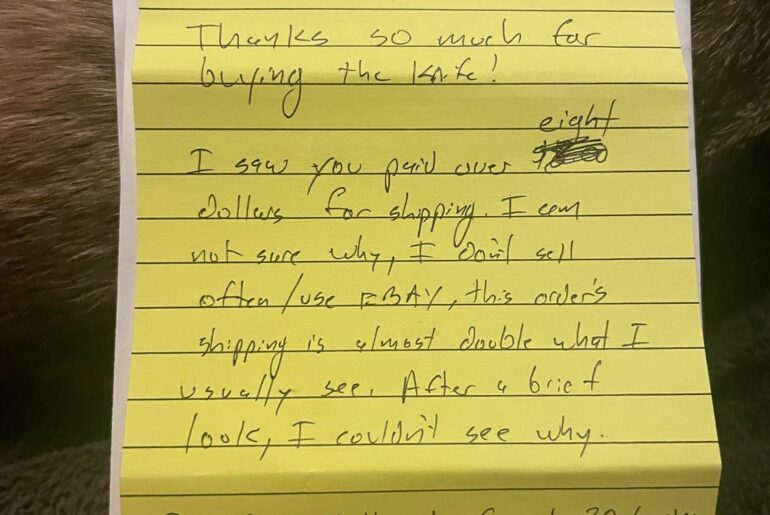 Thanks so much for
buying the knife!
eight
I saw you paid over
dollars for shipping. I am
not sure why, I don't sell
often/use EBAY, this order's
shipping is almost double what I
usually see. After a brief
look, I couldn't see why.